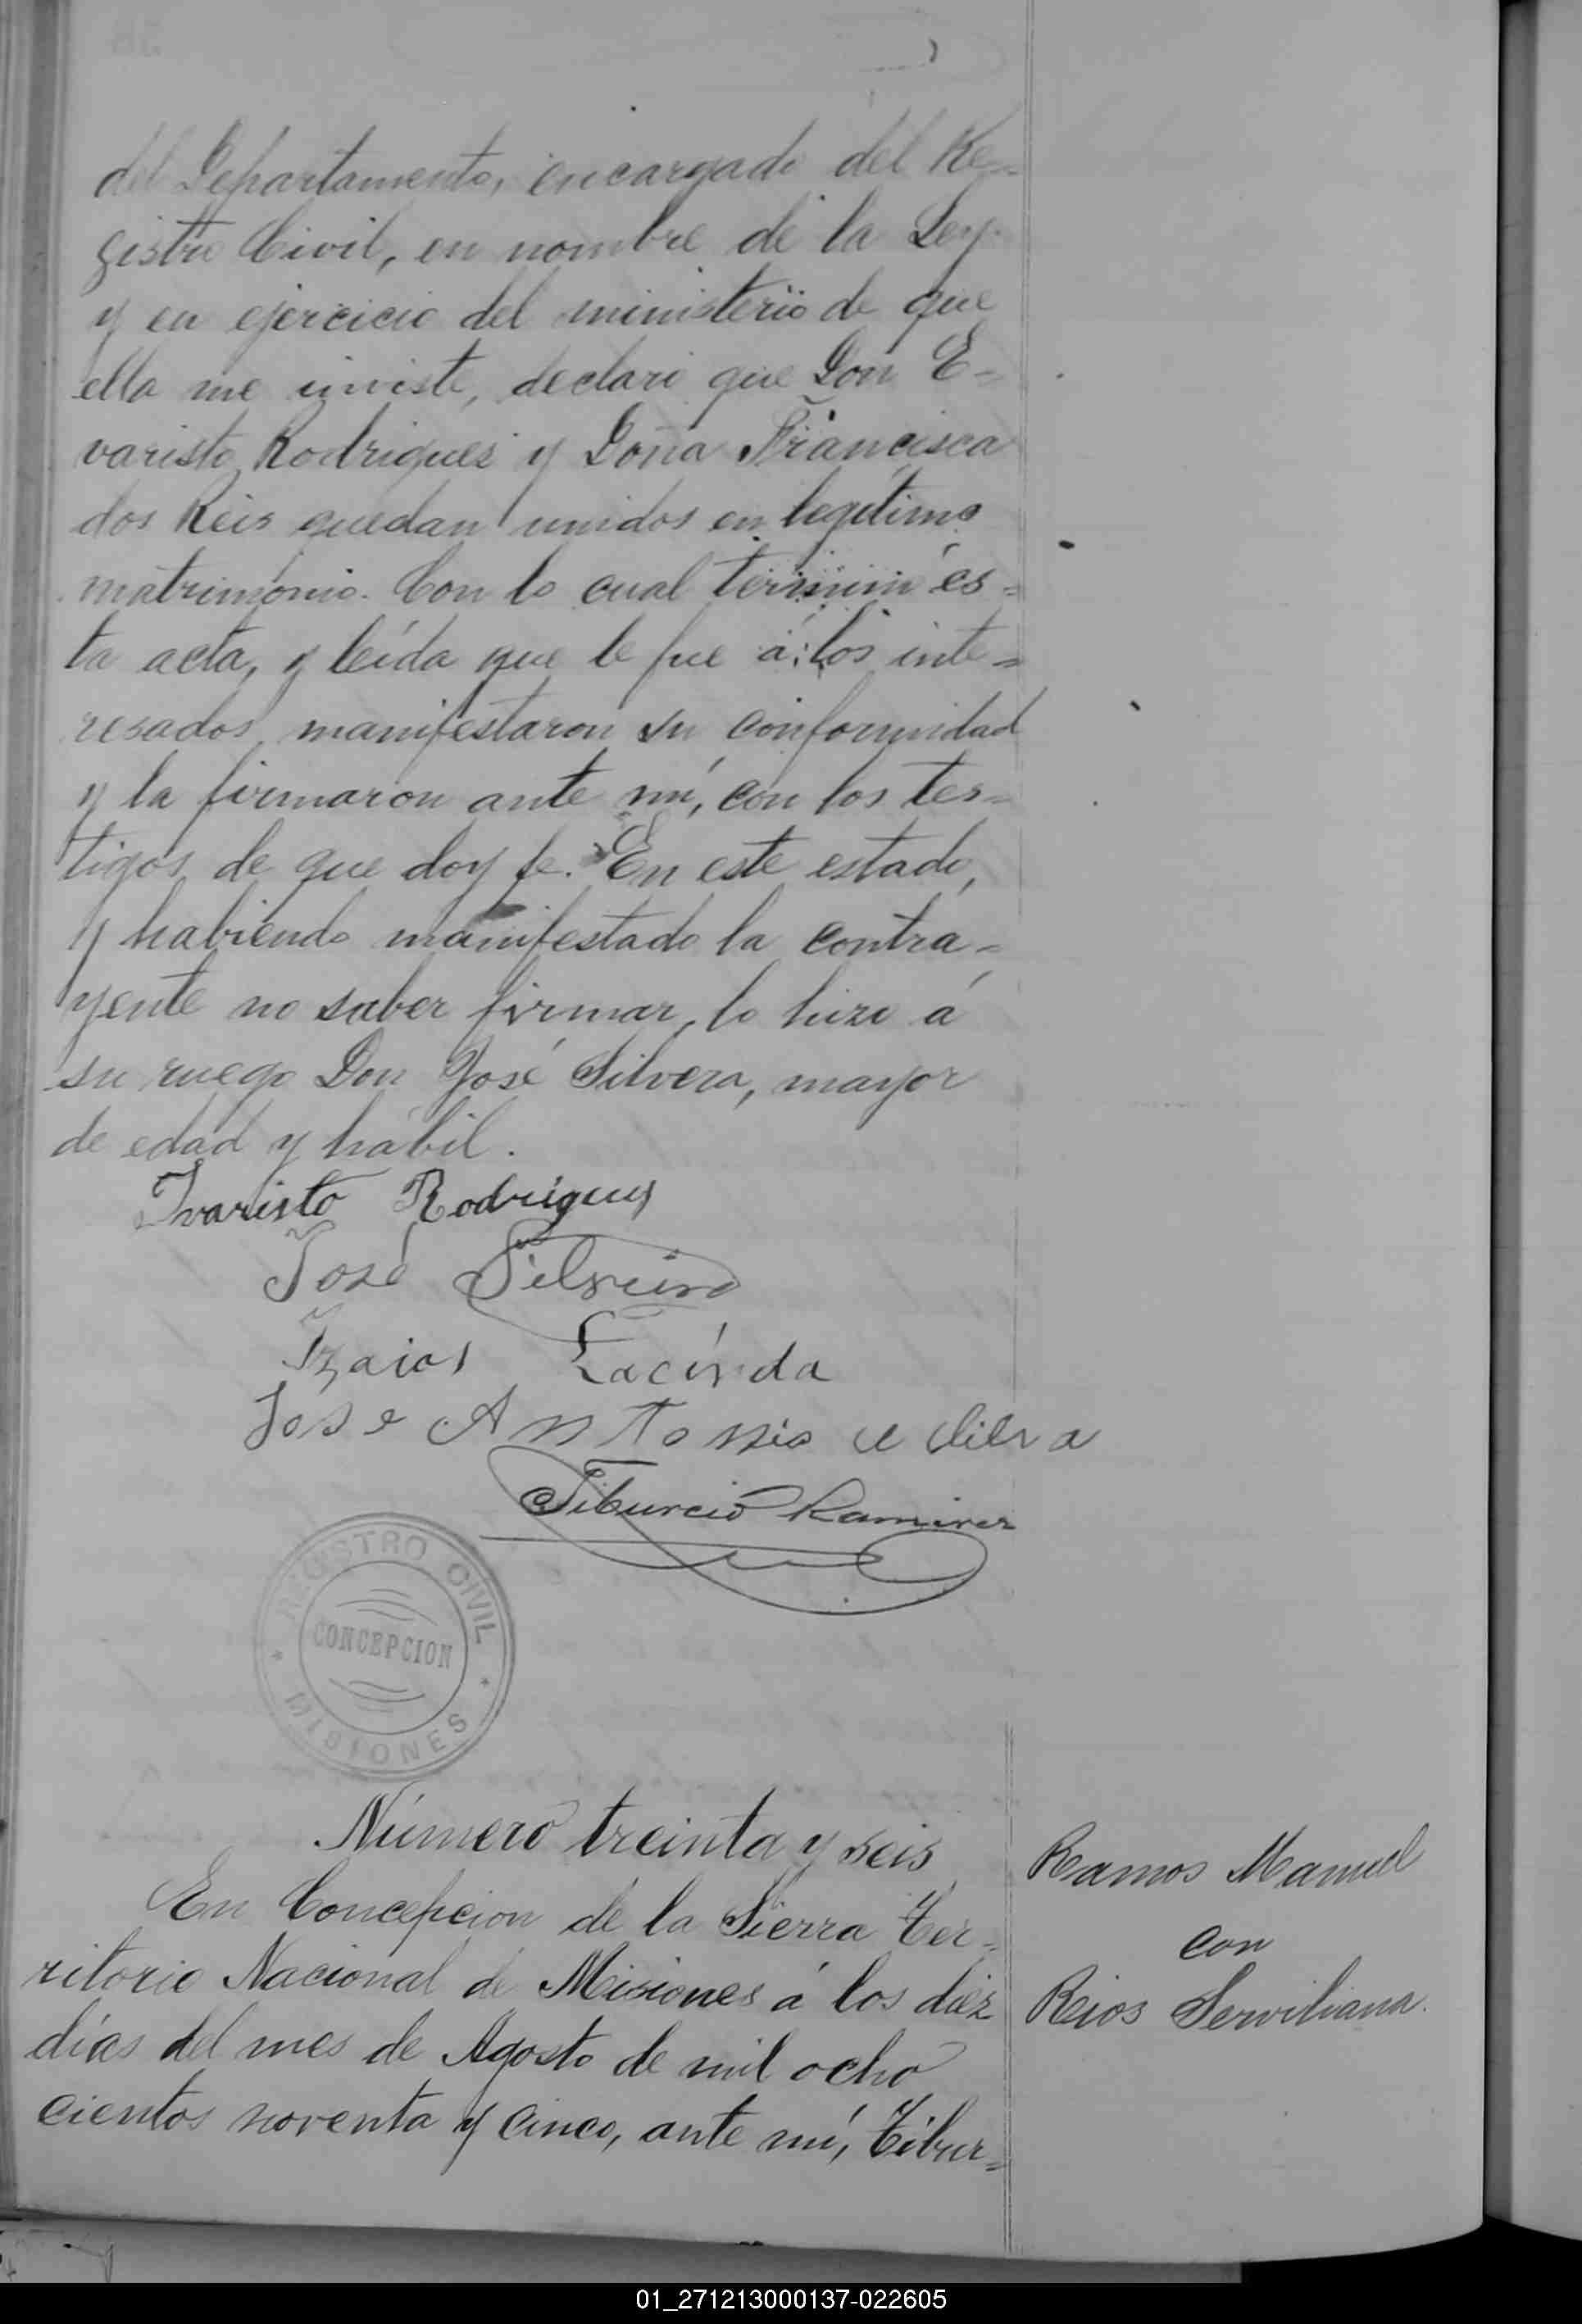 del Departamento, encargado del Re=
gistro Civil, en nombre de la Ley
y en ejercicio del ministerio de que
ella me inviste, declaro que Don E=
varisto Rodriguez y Doña Francisca
dos Reis quedan unidos en legítimo
matrimonio. Con lo cual terminó és=
ta acta, y leída que le fue á los inte=
resados manifestaron su conformidad
y la firmaron ante mí, con los tes=
tigos de que doy fe. En este estado,
y habiendo manifestado la contra=
yente no saber firmar, lo hizo á
su ruego Don José Silvera, mayor
de edad y hábil.
Ivaristo Rodrigues
José Silveira
Izaias Lacérda
Jose Antonio
Tiburcio Ramirez
REGISTRO CIVIL
CONCEPCION
MISIONES
Número treinta y seis
En Concepcion de la Sierra Ter=
ritorio Nacional de Misiones á los diez
días del mes de Agosto de mil ocho
cientos noventa y cinco, ante mí, Tibur=
Ramos Manuel
con
Reios Serviliana.
01_271213000137-022605